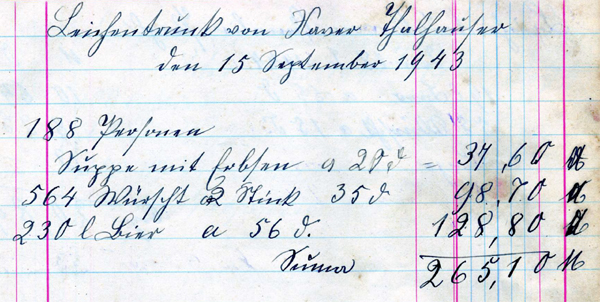 Leichentrunk von Xaver Thalhauser
den 15 September 1943
188 Personen
Suppe mit Erbsen a 20 ₰ = 37,60 M
564 Würscht 2 Stück 35 ₰ 98,70 M
230 l Bier a 56 ₰. 128,80 M
Suma 265,10 M